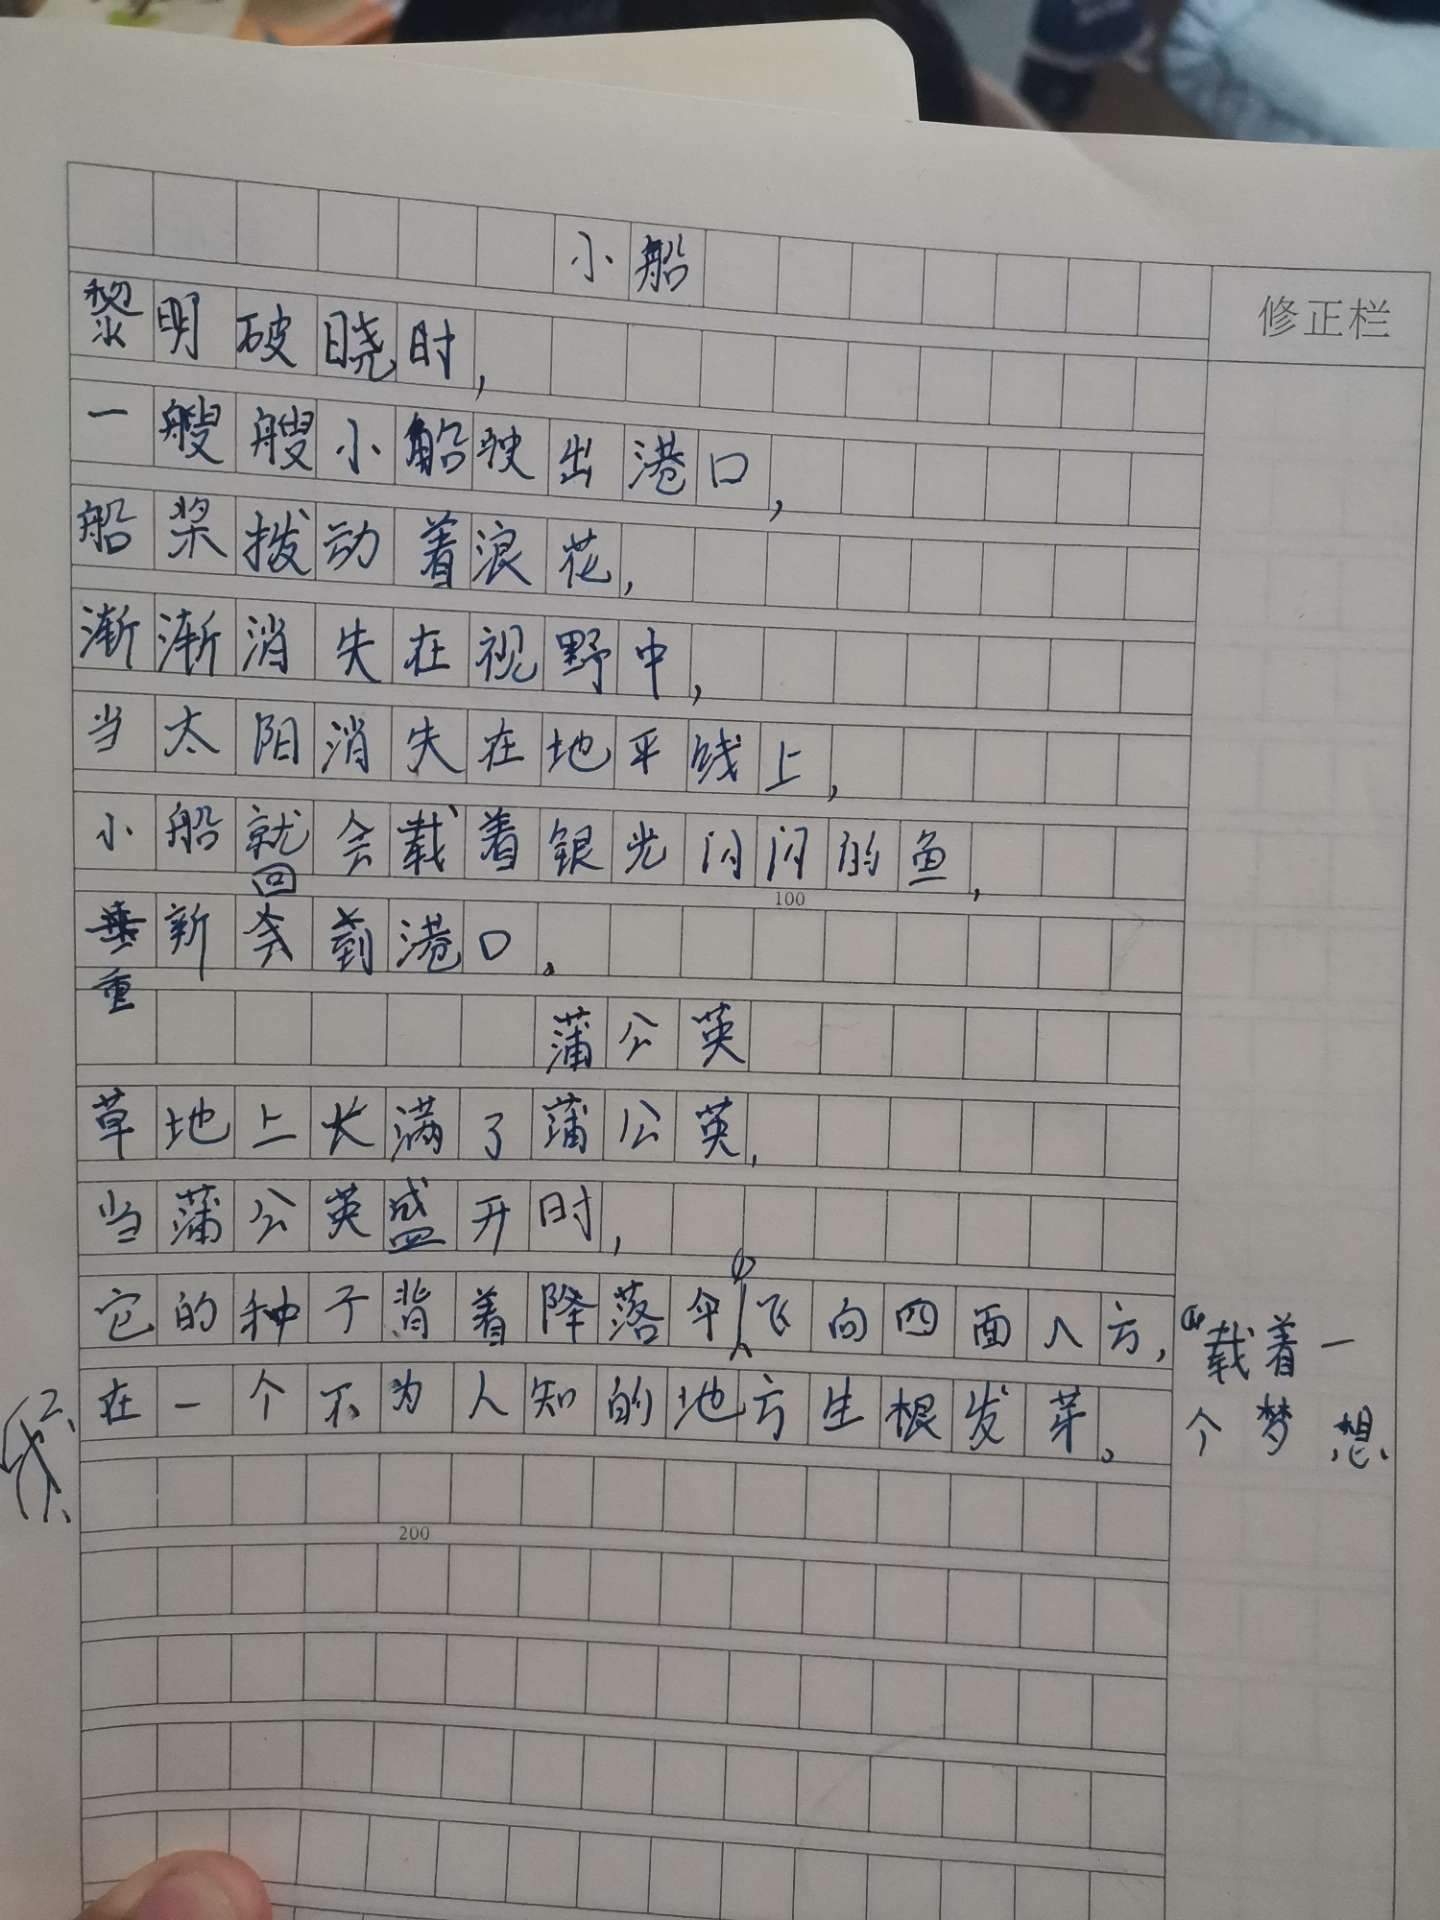 小船
修正栏
黎明破晓时，
一艘艘小船驶出港口，
船桨拨动着浪花，
渐渐消失在视野中，
当太阳消失在地平线上，
小船就会载着银光闪闪的鱼，
100
重新回到港口。
蒲公英
草地上长满了蒲公英，
当蒲公英盛开时，
它的种子背着降落伞飞向四面八方，
载着一个梦想
在一个不为人知的地方生根发芽。
200